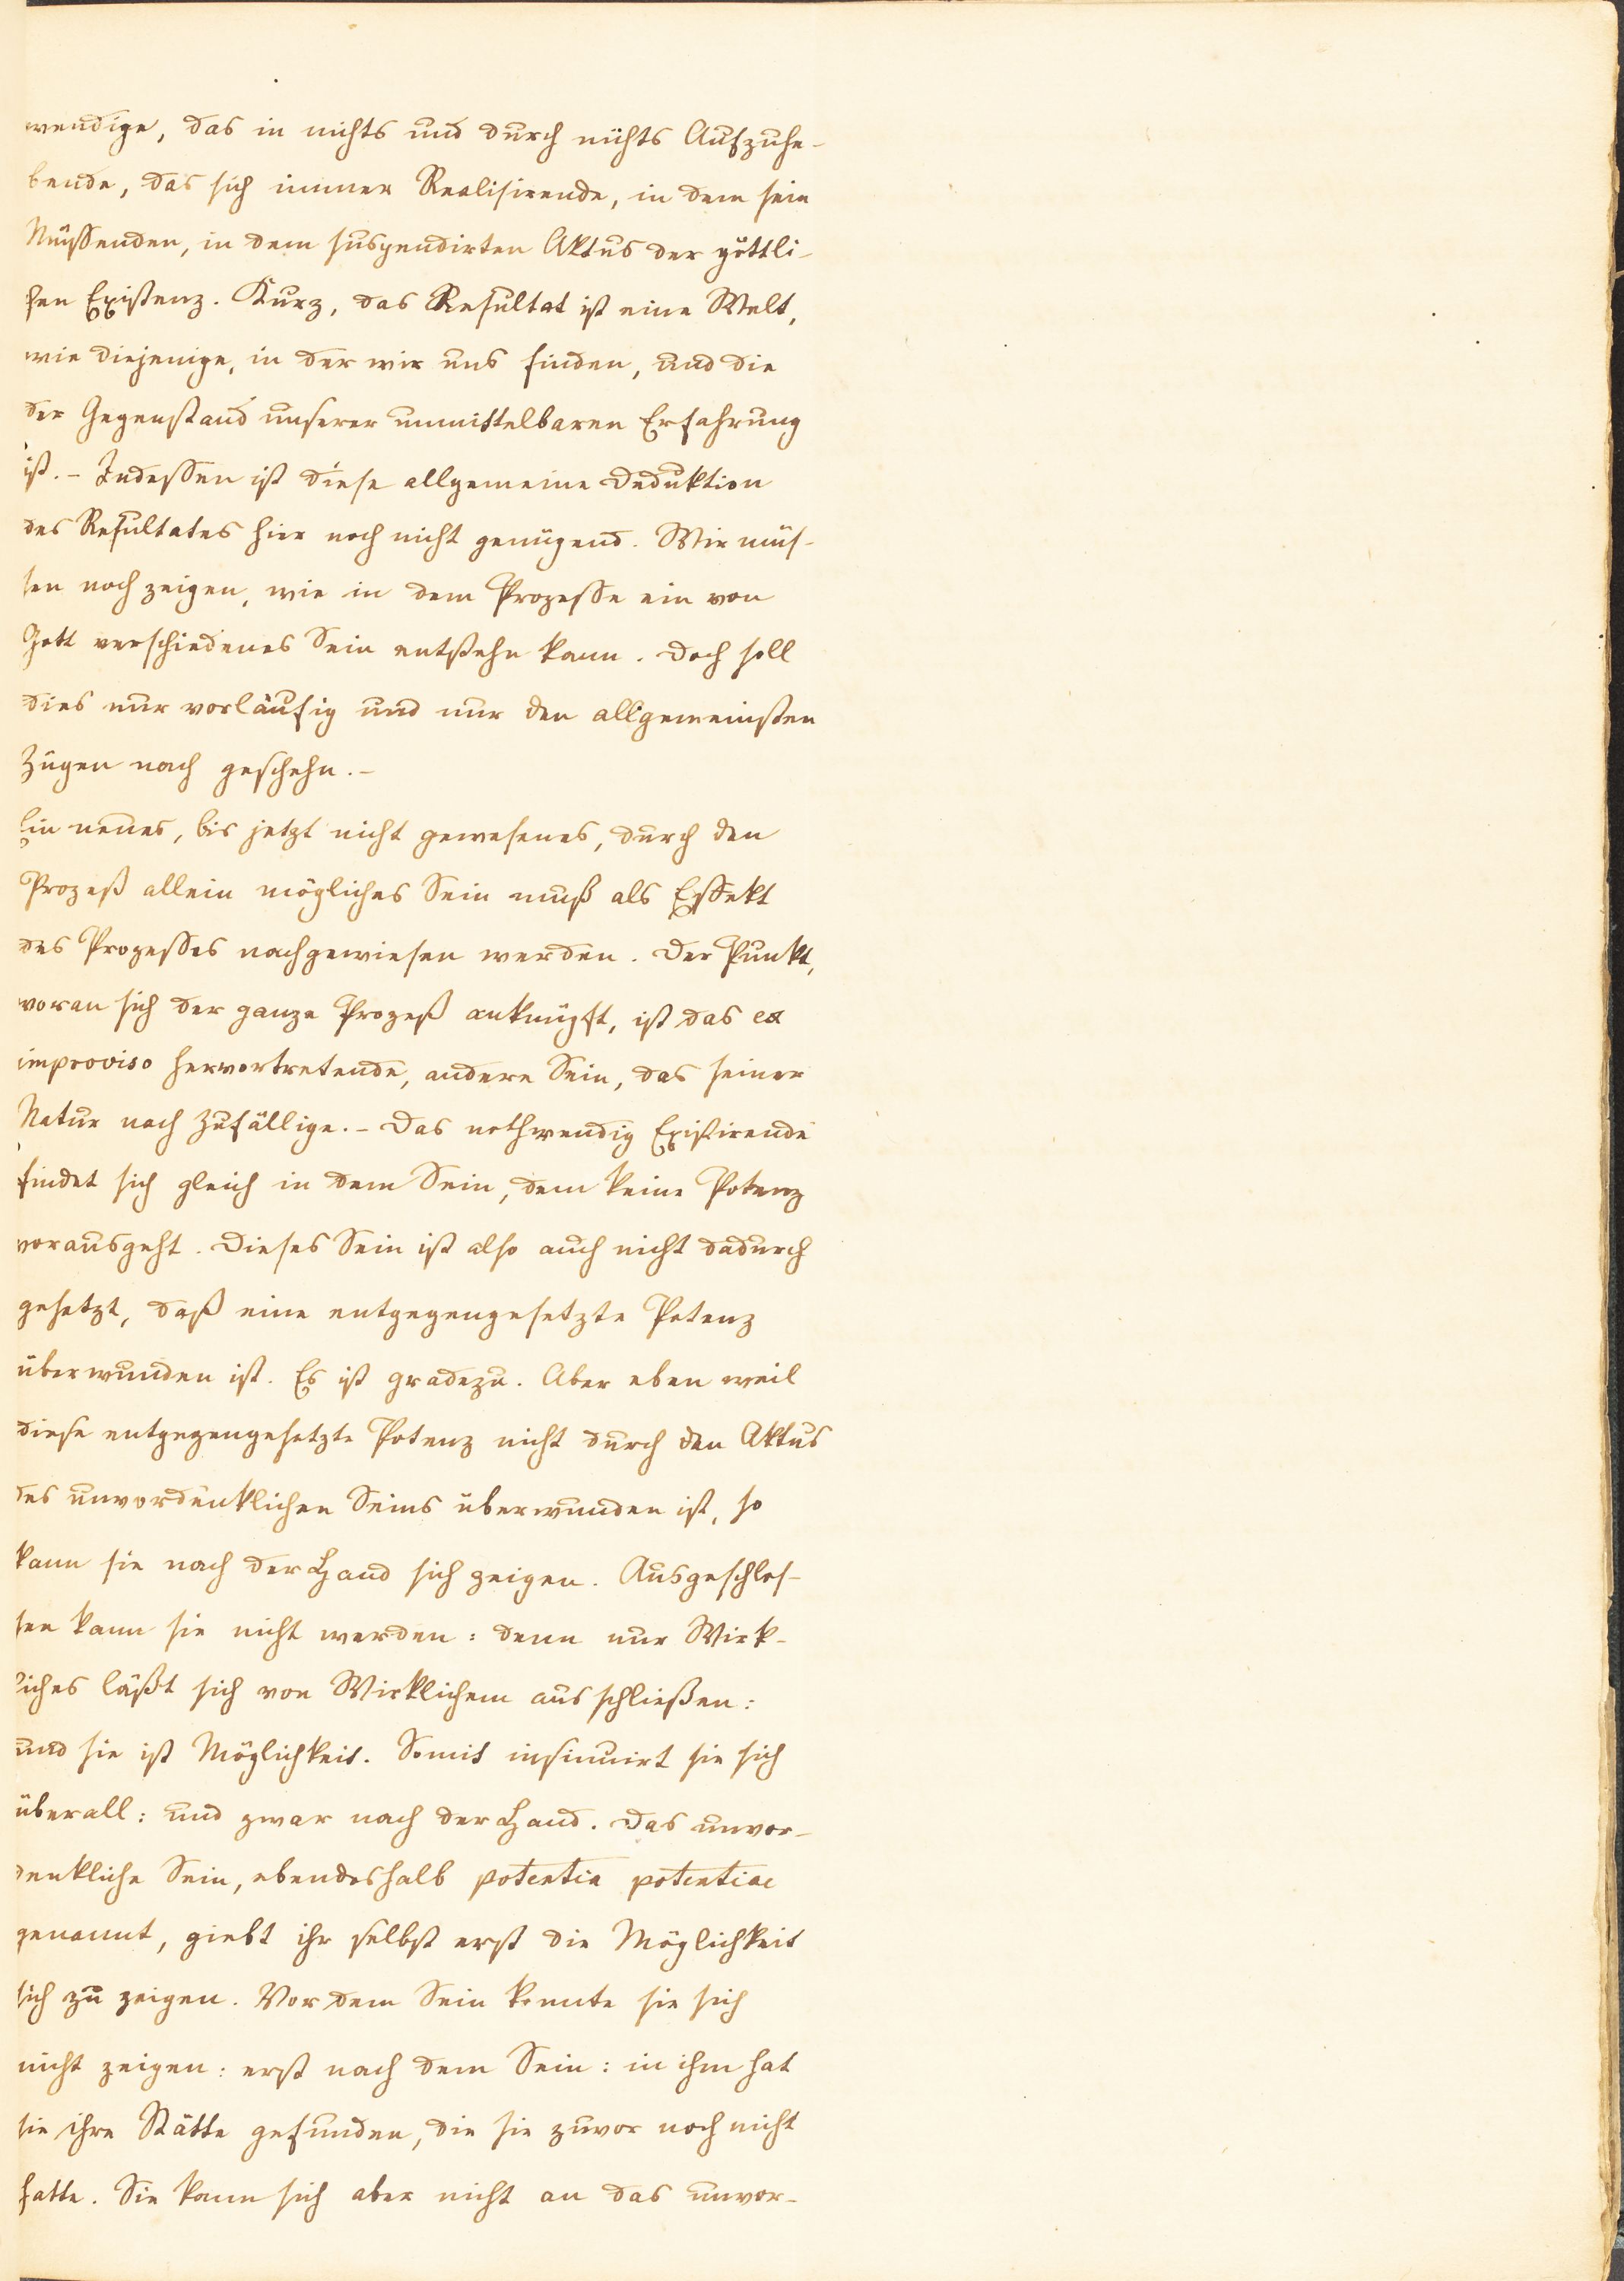 wendige, das in nichts und durch nichts Aufzuhe-
bende, das sich immer Realisirende, in dem sein
Müssenden, in dem suspendirten Aktus der göttli-
chen Existenz. Kurz, das Resultat ist eine Welt,
wie diejenige, in der wir uns finden, und die
der Gegenstand unserer unmittelbaren Erfahrung
ist. – Indessen ist diese allgemeine Deduktion
des Resultates hier noch nicht genügend. Wir müs-
sen noch zeigen, wie in dem Prozesse ein von
Gott verschiedenes Sein entstehn kann. Doch soll
dies nur vorläufig und nur den allgemeinsten
Zügen nach geschehn. –
Ein neues, bis jetzt nicht gewesenes, durch den
Prozeß allein mögliches Sein muß als Effekt
des Prozesses nachgewiesen werden. Der Punkt,
woran sich der ganze Prozeß anknüpft, ist das ex
improviso hervortretende, andere Sein, das seiner
Natur nach Zufällige. – Das nothwendig Existirende
findet sich gleich in dem Sein, dem keine Potenz
vorausgeht. Dieses Sein ist also auch nicht dadurch
gesetzt, daß eine entgegengesetzte Potenz
überwunden ist. Es ist gradezu. Aber eben weil
diese entgegengesetzte Potenz nicht durch den Aktus
des unvordenklichen Seins überwunden ist, so
kann sie nach der Hand sich zeigen. Ausgeschlos-
sen kann sie nicht werden: denn nur Wirk-
liches läßt sich von Wirklichem ausschließen:
und sie ist Möglichkeit. Somit insinuirt sie sich
überall: und zwar nach der Hand. Das unvor-
denkliche Sein, ebendeshalb potentia potentiae
genannt, giebt ihr selbst erst die Möglichkeit
sich zu zeigen. Vor dem Sein konnte sie sich
nicht zeigen: erst nach dem Sein: in ihm hat
sie ihre Stätte gefunden, die sie zuvor noch nicht
hatte. Sie kann sich aber nicht an das unvor-